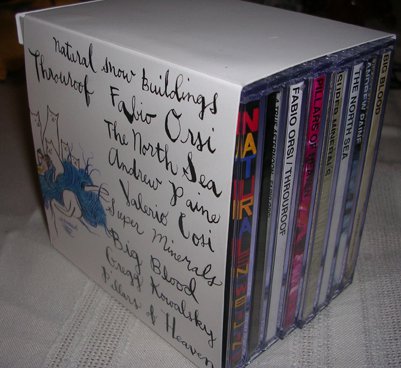 natural snow buildings
Throuroof Fabio Orsi
The North Sea
Andrew Paine
Valerio Cosi
Super Minerals
Big Blood
Gregg Kowalsky
Pillars of Heaven
NATURAL
FABIO ORSI / THROUROOF
PILLARS OF HEAVEN
SUPER MINERALS
THE NORTH SEA
ANDREW PAINE
BIG BLOOD